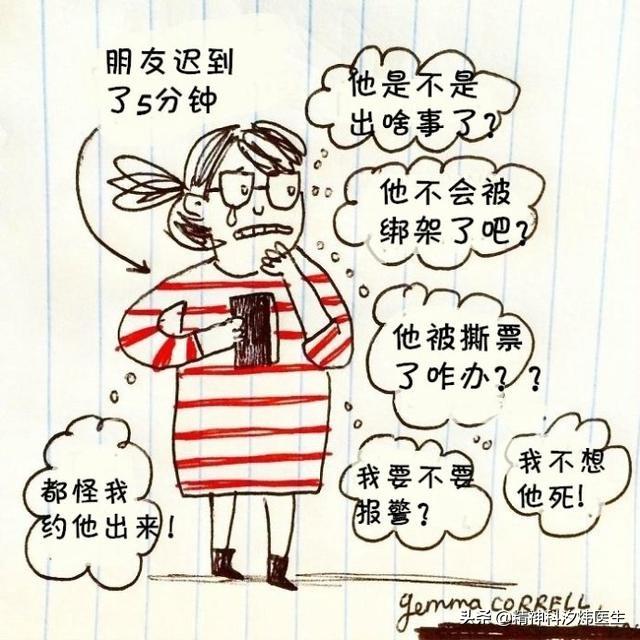 朋友迟到
了5分钟
他是不是
出啥事了?
他不会被
绑架了吧?
他被撕票
了咋办??
我要不要
报警?
我不想
他死!
都怪我
约他出来!
gemma CORRELL
头条@精神科汐炜医生